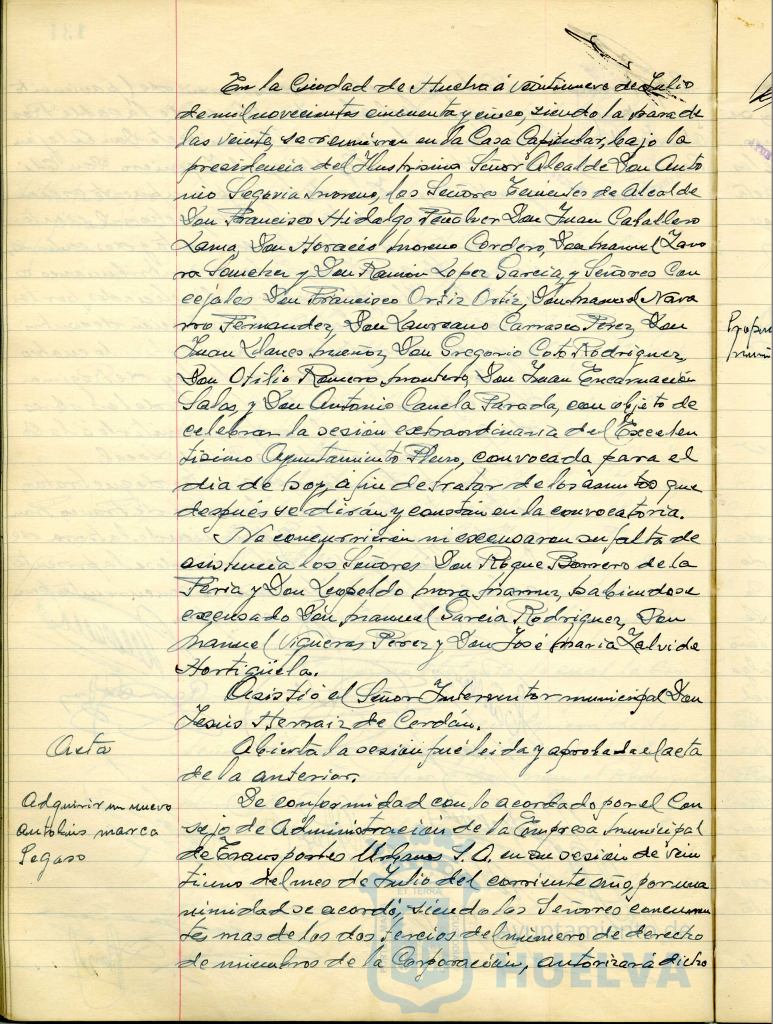 En la Ciudad de Huelva á veintinueve de Julio
de mil novecientos cincuenta y cinco, siendo la hora de
las veinte, se reunieron en la Casa Capitular, bajo la
presidencia del Ilustrisimo Señor Alcalde Don Anto
nio Segovia Moreno, los Señores Tenientes de Alcalde
Don Francisco Hidalgo Peñalver Don Juan Caballero
Lama, Don Horacio Moreno Cordero, Don Manuel Zamo
ra Sanchez y Don Ramón Lopez Garcia, y Señores Con
cejales Don Francisco Ortiz Ortiz, Don Manuel Nava
rro Fernandez, Don Laureano Carrasco Perez, Don
Juan Llanes Muñoz, Don Gregorio Coto Rodriguez,
Don Otilio Romero Montero, Don Juan Encarnación
Salas, y Don Antonio Canela Parada, con objeto de
celebrar la sesión extraordinaria del Excelen
tisimo Ayuntamiento Pleno, convocada para el
dia de hoy, á fin de tratar de los asuntos que
después se dirán y constan en la convocatoria.
No concurrieron ni excusaron su falta de
asistencia los Señores Don Roque Barrero de la
Feria y Don Leopoldo Mora habiendose
excusado Don Manuel Garcia Rodriguez, Don
Manuel Vigueras Perez y Don José Maria Zalvide
Hortigüela.
Asistió el Señor Interventor municipal Don
Jesús Herraiz de Cerdán.
Acta
Abierta la sesión fué leida y aprobada el acta
de la anterior.
Adquirir un nuevo
autobús marca
Pegaso
De conformidad con lo acordado por el Con
sejo de Administración de la Empresa Municipal
de Transportes Urbanos S.A. en su sesión de vein
tiuno del mes de Julio del corriente año, por una
nimidad se acordó, siendo los Señores concurren
tes mas de los dos tercios del número de derecho
de miembros de la Corporación, autorizar a dicho
Ayuntamiento de
HUELVA